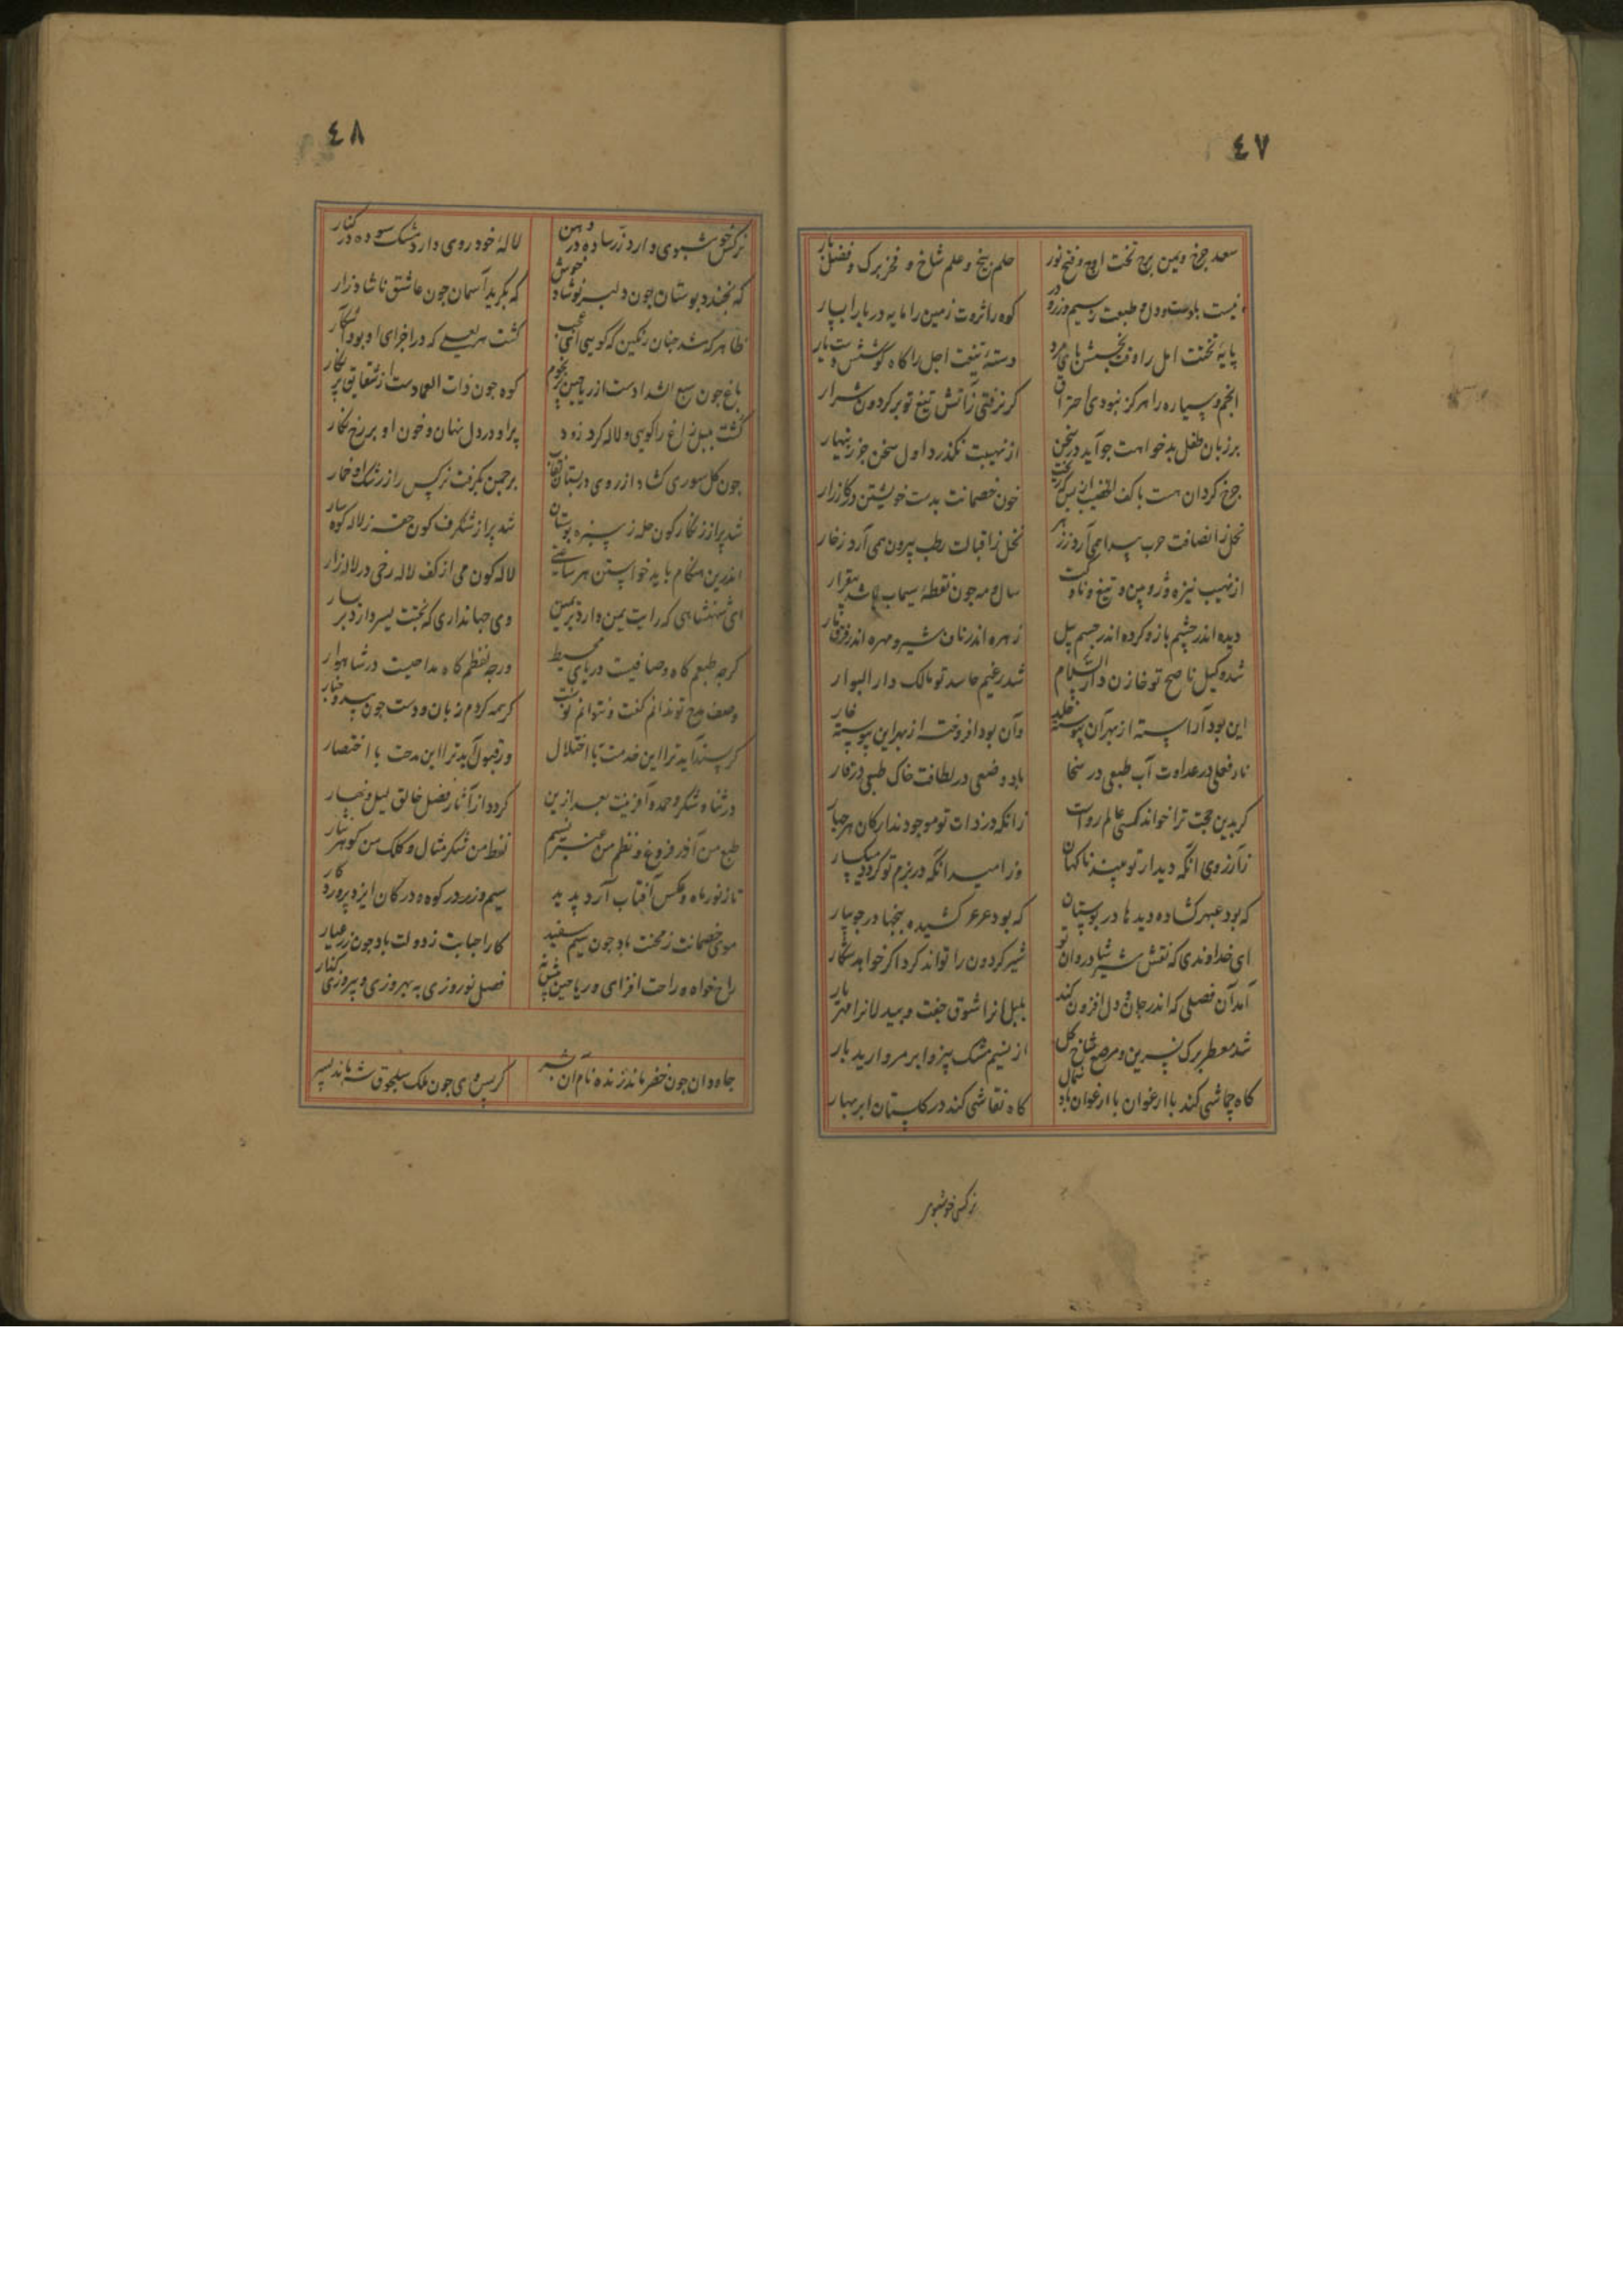 ٤٧
سعد چرخ و یمن برج تخت اوج و فتح نور حلم بیخ و علم شاخ و فخر برک و فضل بار
نیست با دست و دل و طبعت سیم و زر و در کوه را ثروت زمین را مایه دریا را یسار
پایهٔ تختت امل را وقت بخشش پای مرد دستهٔ تیغت اجل را کاه کوشش دستیار
انجم سیاره را هرکز نبودی احتراق کر نرفتی زآتش تیغ تو بر کردون شرار
بر زبان طفل بدخواهت چو آید در سخن از نهیبت نکذرد اول سخن جز زینهار
چرخ کردان هست با کف الخضیب از بس که ریخت خون خصمانت بدست خویشتن در کارزار
نحل ز انصافت حرب پیدا همی آرد ز زهر نخل ز اقبالت رطب بیرون همی آرد ز خار
از نهیب نیزه و ژوپین و تیغ و ناوکت سال و مه چون نقطهٔ سیماب باشد بیقرار
دیده اندر چشم باز و کرده اندر جسم پیل زهره اندر ناف شیر و مهره اندر فرق مار
شد وکیل ناصح تو خازن دار السلام شد زعیم حاسد تو مالک دار البوار
این بود آراسته از بهر آن پیوسته خلد وآن بود افروخته از بهر این پیوسته نار
نار فعلی در عداوت آب طبعی در سخا باد وضعی در لطافت خاک طبعی در وقار
کر بدین حجت ترا خواند کسی عالم رواست زانکه در ذات تو موجودند ارکان هر چهار
زآرزوی آنکه دیدار تو بیند ناکهان وز امید آنکه در بزم تو کردد میکسار
که بود عبهر کشاده دیدها در بوستان که بود عرعر کشیده پنجها در جویبار
ای خداوندی که نقش شیر شادروان تو شیر کردون را تواند کرد اکر خواهد شکار
آمد آن فصلی که اندر جان و دل افزون کند بلبلانرا شوق جفت و بیدلانرا مهر یار
شد معطر برک نسرین و مرصع شاخ کل از نسیم مشک بیز و ابر مروارید بار
کاه جماشی کند با ارغوان باد شمال کاه نقاشی کند در کلستان ابر بهار
نرکس خوشبوی
٤٨
نرکس خوشبوی دارد زر ساده در دهن لالهٔ خودروی دارد مشک سوده در کنار
که بخندد بوستان چون دلبر نوشاد خوش که بکرید آسمان چون عاشق ناشاد زار
ظاهر کشت چنان رنکین که کویی ای عجب کشت مریعی که در اجزای او بود آشکار
باغ چون سبع الشدادست از ریاحین پر نجوم کوه چون ذات العمادست از شقایق پر نکار
کشت بلبل زاغ را کویی و لاله کرد زود پر او در دل نهان و خون او بر رخ نکار
چون کل سوری کشاد از روی در بستان نقاب بر چمن بکرفت نرکس را ز رشک او خمار
شد پر از زنکارکون حله ز سبزه بوستان شد پر از شنکرف کون حقه ز لاله کوهسار
اندرین هنکام باید خواستن هر ساعتی لاله کون می از کف لاله رخی در لاله زار
ای شهنشاهی که رایت یمن دارد بر یمین وی جهانداری که بختت یسر دارد بر یسار
کرچه طبعم کاه وصافیت دریای محیط ورچه لفظم کاه مداحیت در شاهوار
وصف مدح تو ندانم کفت و نتوانم نوشت کر همه کردم زبان و دست چون بید و چنار
کر پسند آید ترا این خدمت با اختلال ور قبول آید ترا این مدحت با اختصار
در ثنا و شکر و حمد و آفرینت بعد ازین کردد از آثار فضل خالق لیل و نهار
طبع من آذر فروغ و نظم من عنبر نسیم لفظ من شکر مثال و کلک من کوهر نثار
تا ز نور ماه و عکس آفتاب آرد پدید سیم و زر در کوه و در کان ایزد پروردکار
موی خصمانت ز محنت باد چون سیم سفید کار احبابت ز دولت باد چون زر عیار
راح خواه و راحت افزای و ریاحین پیش نه فصل نوروزی به بهروزی و پیروزی کنار
جاودان چون خضر ماند زنده نام آن بشر کز پس وی چون ملک سلجوق شه ماند پسر